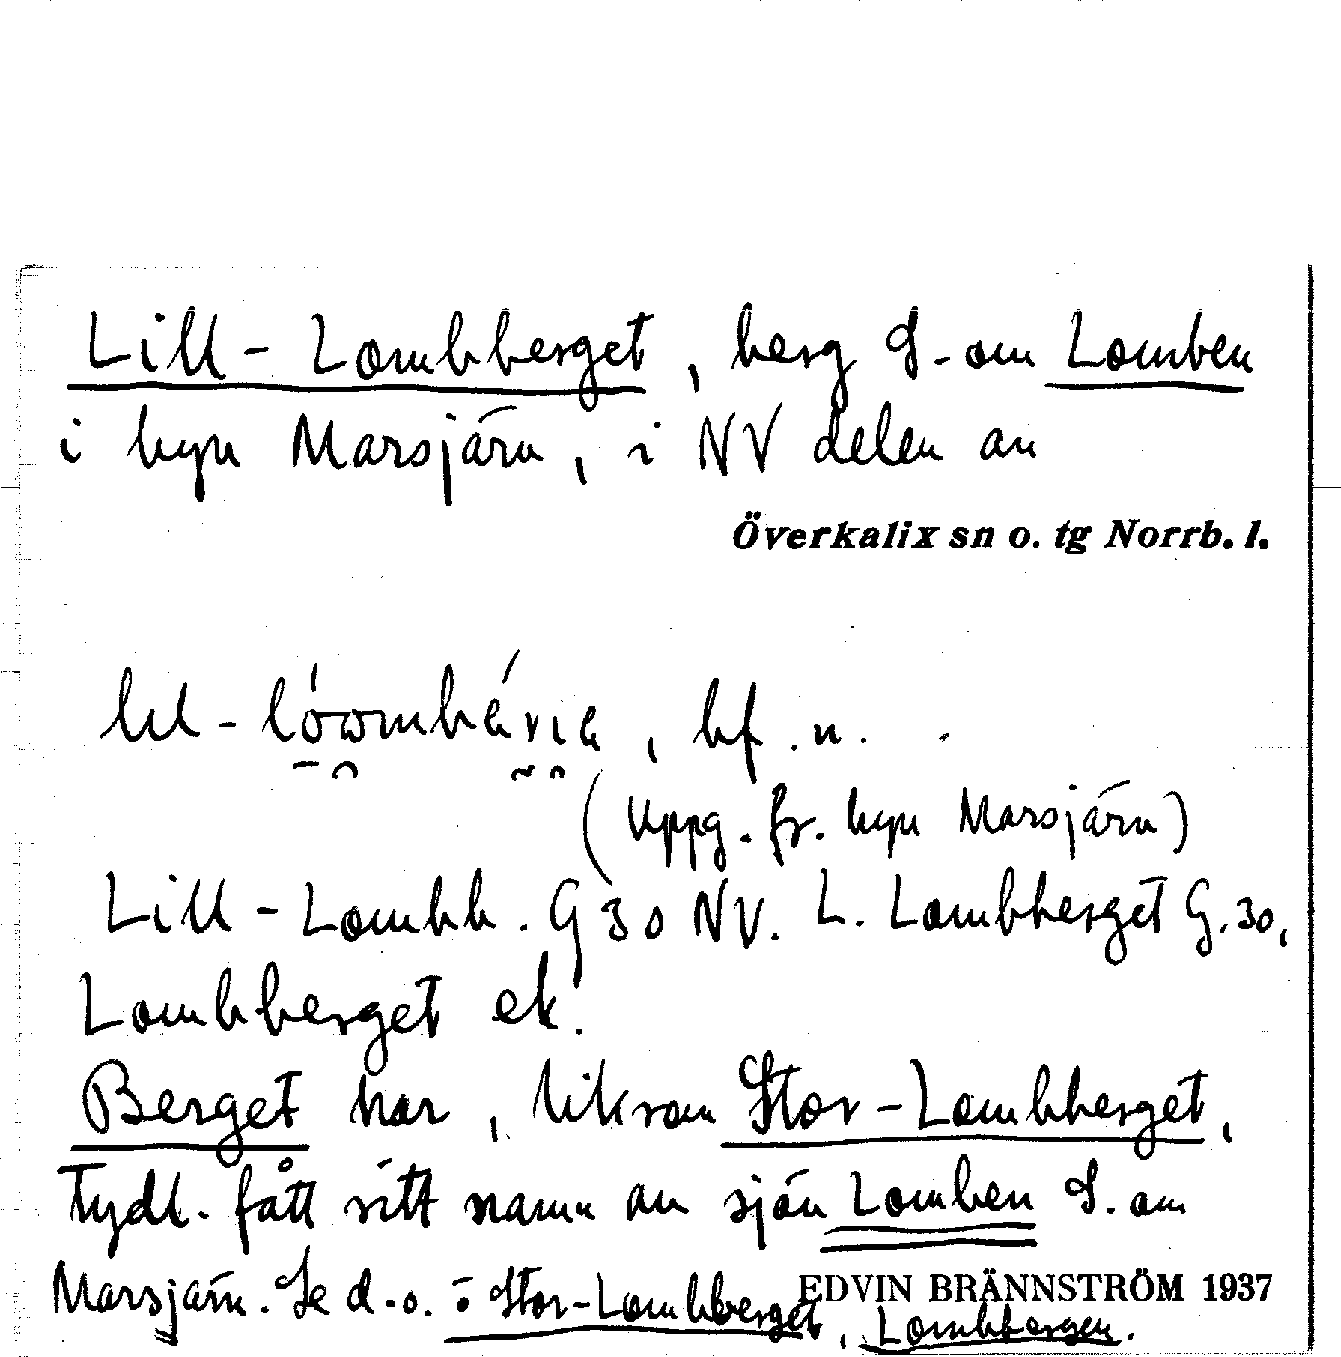 Lill-Lombberget, berg S. om Lomben
i byn Marsjärn, i NV delen av
Överkalix sn o. tg Norrb. l.
bf. n.
(Uppg. fr. byn Marsjärn)
Lill-Lombb. G 30 NV. L. Lombberget G. 30,
Lombberget ek.
Berget har, liksom Stor-Lombberget,
tydl. fått sitt namn av sjön Lomben S. om
Marsjärn. Se d. o. o Stor-Lombberget, Lombbergen.
EDVIN BRÄNNSTRÖM 1937